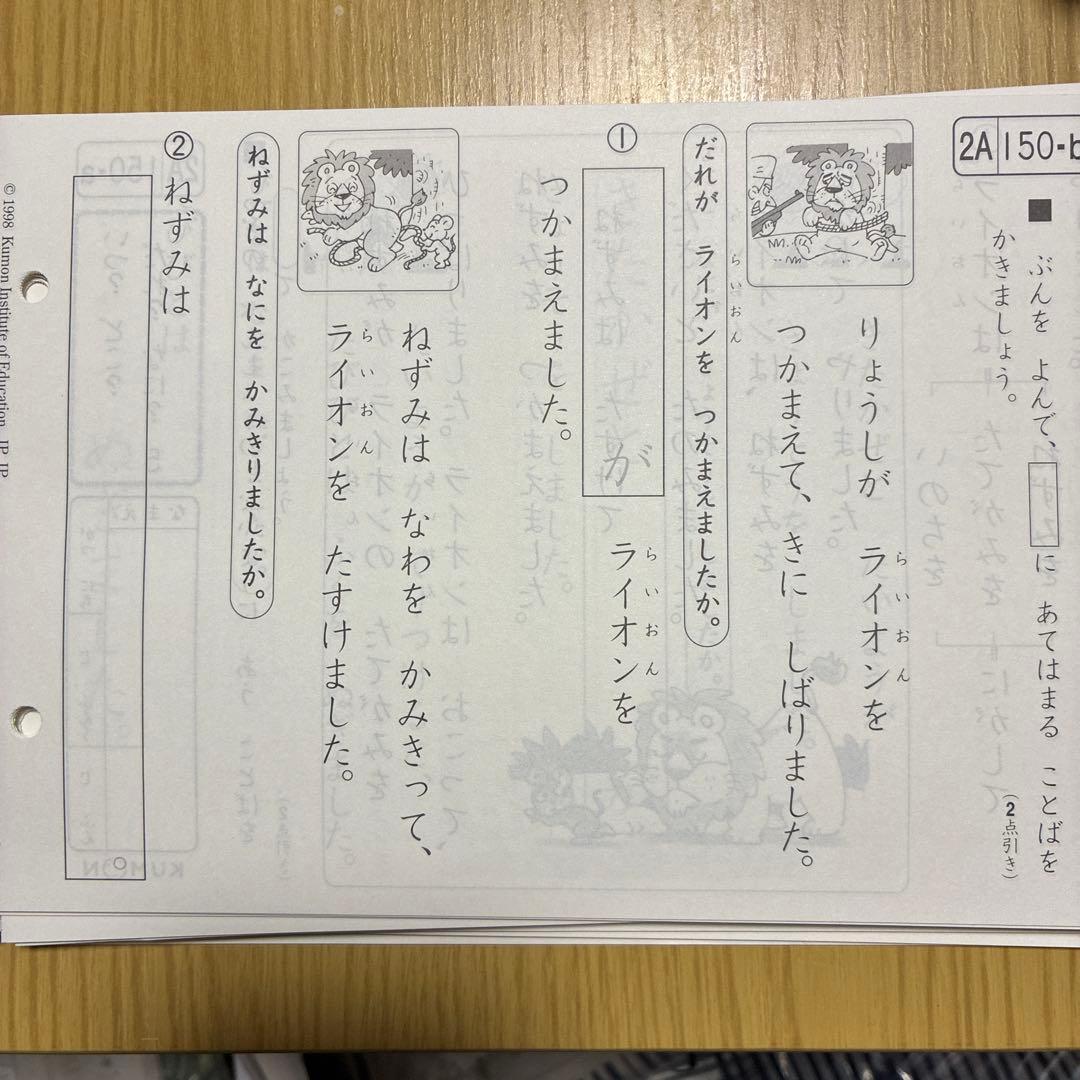 2A 150-b
■ ぶんを よんで、
に あてはまる ことばを
かきましょう。
(2点引き)
りょうしが ライオンを
らいおん
つかまえて、きに しばりました。
だれが ライオンを つかまえましたか。
らいおん
①
が
ライオンを
らいおん
つかまえました。
ねずみは なわを かみきって、
ライオンを たすけました。
らいおん
ねずみは なにを かみきりましたか。
②
ねずみは
。
© 1998 Kumon Institute of Education JP JP